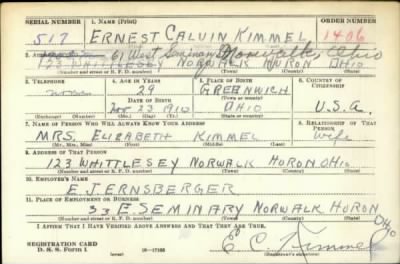 SERIAL NUMBER 1. NAME (Print) ORDER NUMBER
517 ERNEST CALVIN KIMMEL 1406
61 West Seminary Norwalk, Ohio
123 WHITTLESEY NORWALK HURON OHIO
(Number and street or R. F. D. number) (Town) (County) (State)
3. TELEPHONE 4. AGE IN YEARS 5. PLACE OF BIRTH 6. COUNTRY OF CITIZENSHIP
29 GREENWICH
DATE OF BIRTH
23 1910 OHIO U.S.A.
(Mo.) (Day) (Yr.) (State or country)
7. NAME OF PERSON WHO WILL ALWAYS KNOW YOUR ADDRESS 8. RELATIONSHIP OF THAT PERSON
MRS. ELIZABETH KIMMEL wife
(Mr., Mrs., Miss) (First) (Middle) (Last)
9. ADDRESS OF THAT PERSON
123 WHITTLESEY NORWALK HORON OHIO
(Number and street or R. F. D. number) (Town) (County) (State)
10. EMPLOYER'S NAME
E J ERNSBERGER
11. PLACE OF EMPLOYMENT OR BUSINESS
33 E SEMINARY NORWALK HORON OHIO
(Number and street or R. F. D. number) (Town) (County) (State)
I AFFIRM THAT I HAVE VERIFIED ABOVE ANSWERS AND THAT THEY ARE TRUE.
REGISTRATION CARD
D. S. S. Form 1 16—17105 E C Kimmel
(Registrant's signature)